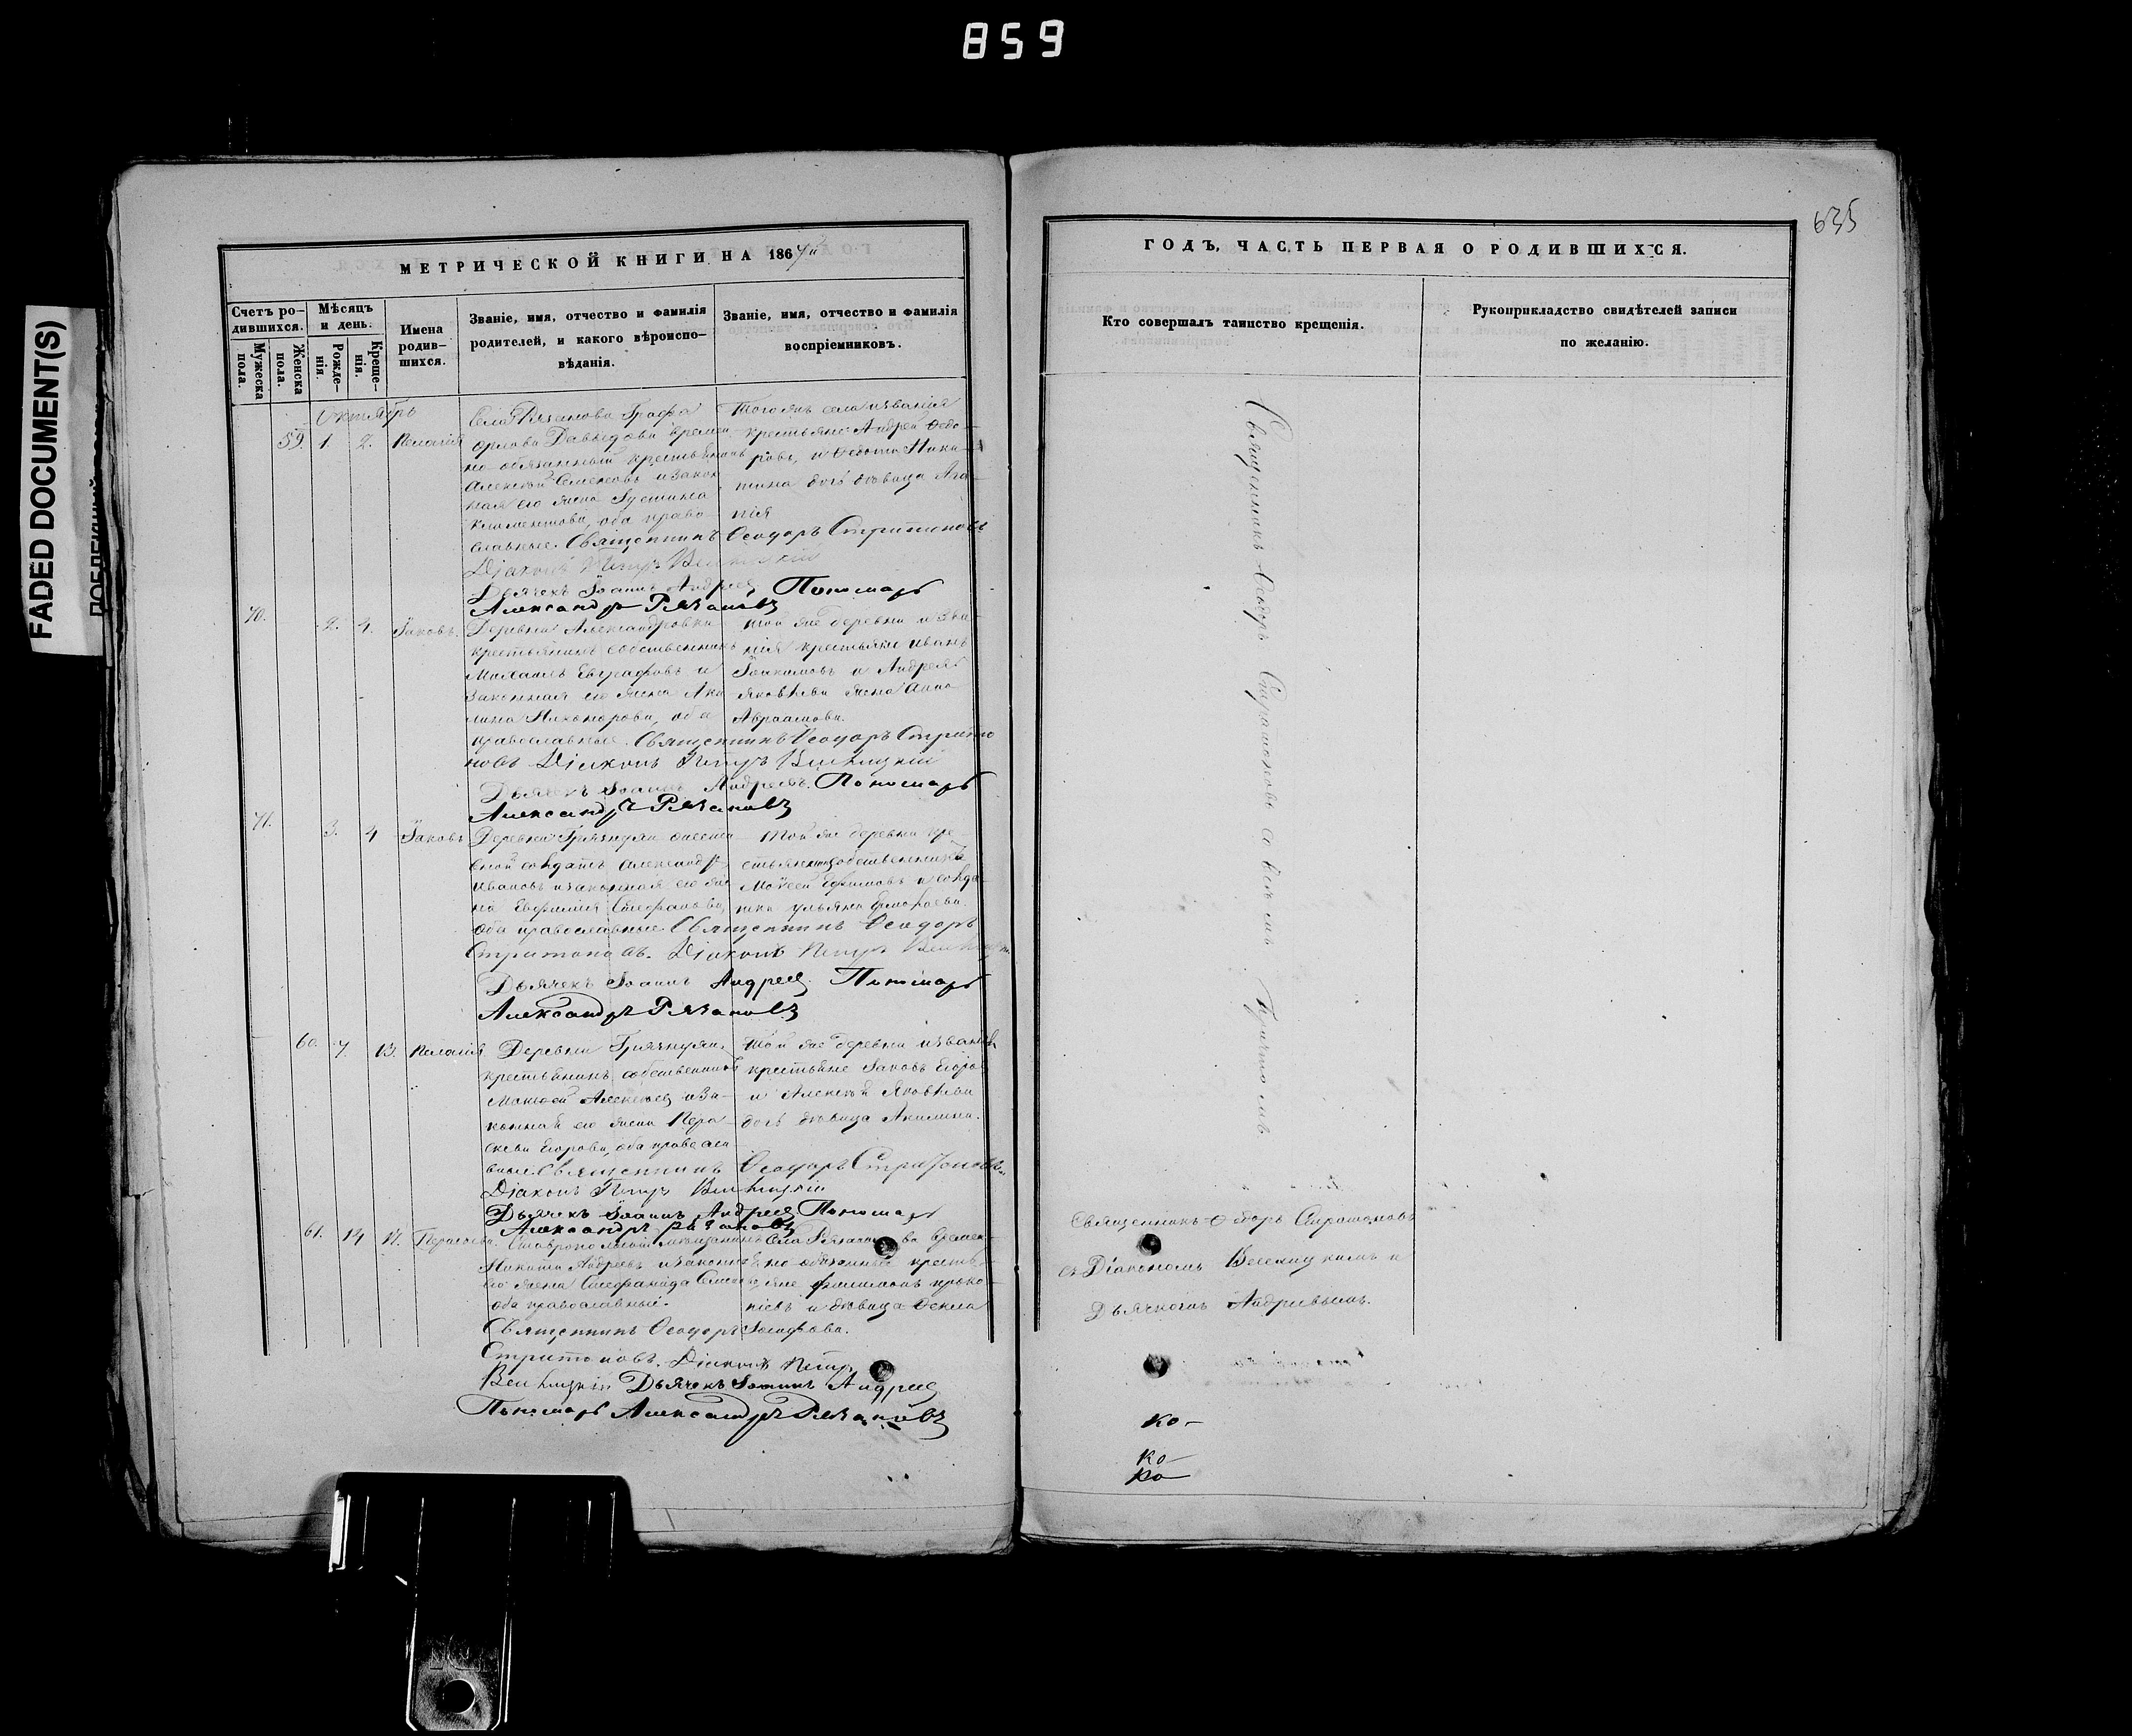 859
FADED DOCUMENT(S)
635
МЕТРИЧЕСКОЙ КНИГИ НА 1867й
Счетъ ро-
дившихся.
Мужеска
пола.
Женска
пола.
Мѣсяцъ
и день.
Рожде-
нія.
Креще-
нія.
Имена
родив-
шихся.
Званіе, имя, отчество и фамилія
родителей, и какого вѣроиспо-
вѣданія.
Званіе, имя, отчество и фамилія
воспріемниковъ.
Октябрь
59. 1. 2. Пелагія
Села Рязанова Графа
Орлова Давыдова времен-
но-обязанный крестьянинъ
Алексѣй Семеновъ и закон
ная его жена Іустина
Климентова, оба право-
славные. Священникъ Ѳеодоръ Стритоновъ
Діаконъ Петръ
Дьячекъ Іоаннъ Андреев Пономарь
Александръ Рязановъ
Тогожъ села и званія
крестьяне Андрей Ѳедо-
ровъ, и Ѳедота Ники-
тина дочь дѣвица Ага-
пія
70. 2. 4. Іаковъ.
Деревни Александровки
крестьянинъ собственникъ
Михаилъ Евграфовъ и
законная его жена Аки
лина Никонорова, оба
православные. Священникъ Ѳеодоръ Стрито
новъ Діаконъ Петръ
Дьячекъ Іоаннъ Андреевъ. Пономарь
Александръ Рязановъ
Той же деревни и зва-
нія крестьяне Иванъ
Іоакимовъ и Андрея
Яковлева жена Анна
Авраамова.
71. 3. 4 Іаковъ
Деревни
солдатъ Александръ
Ивановъ и законная его же
на Евфимія Стефанова,
оба православные Священникъ Ѳеодоръ
Стритоновъ. Діаконъ Петръ
Дьячекъ Іоаннъ Андреев Пономарь
Александръ Рязановъ
Той же деревни кре-
стьянинъ собственникъ
Моѵсей Ефимовъ и солда-
тка Ульяна
60. 7. 13. Пелагія
Деревни
крестьянинъ собственникъ
Алексеев и за-
конная его жена Пара-
скева Егорова, оба правосла-
вные. Священникъ Ѳеодоръ Стритоновъ
Діаконъ Петръ
Дьячекъ Іоаннъ Андреев Пономарь
Александръ Рязановъ
Той же деревни и званія
крестьяне Іаковъ Егоров
и Алексѣя Яковлева
дочь дѣвица Акилина.
61. 14 17. Параскева.
Ставропольскій мѣщанинъ
Никита Андреевъ и законная
его жена Стефанида
оба православные.
Священникъ Ѳеодоръ
Стритоновъ. Діаконъ Петръ
Дьячекъ Іоаннъ Андреев
Пономарь Александръ Рязановъ
Села Рязанова времен-
но-обязанные кресть-
яне Филимонъ Проко-
піевъ и дѣвица Ѳекла
Іосифова.
ГОДЪ, ЧАСТЬ ПЕРВАЯ О РОДИВШИХСЯ.
Кто совершалъ таинство крещенія.
Рукоприкладство свидѣтелей записи
по желанію.
Священникъ Ѳеодоръ Стритоновъ
Священникъ Ѳеодоръ Стритоновъ
съ Діакономъ и
Дьячкомъ Андреевымъ.
ко-
ко-
ко